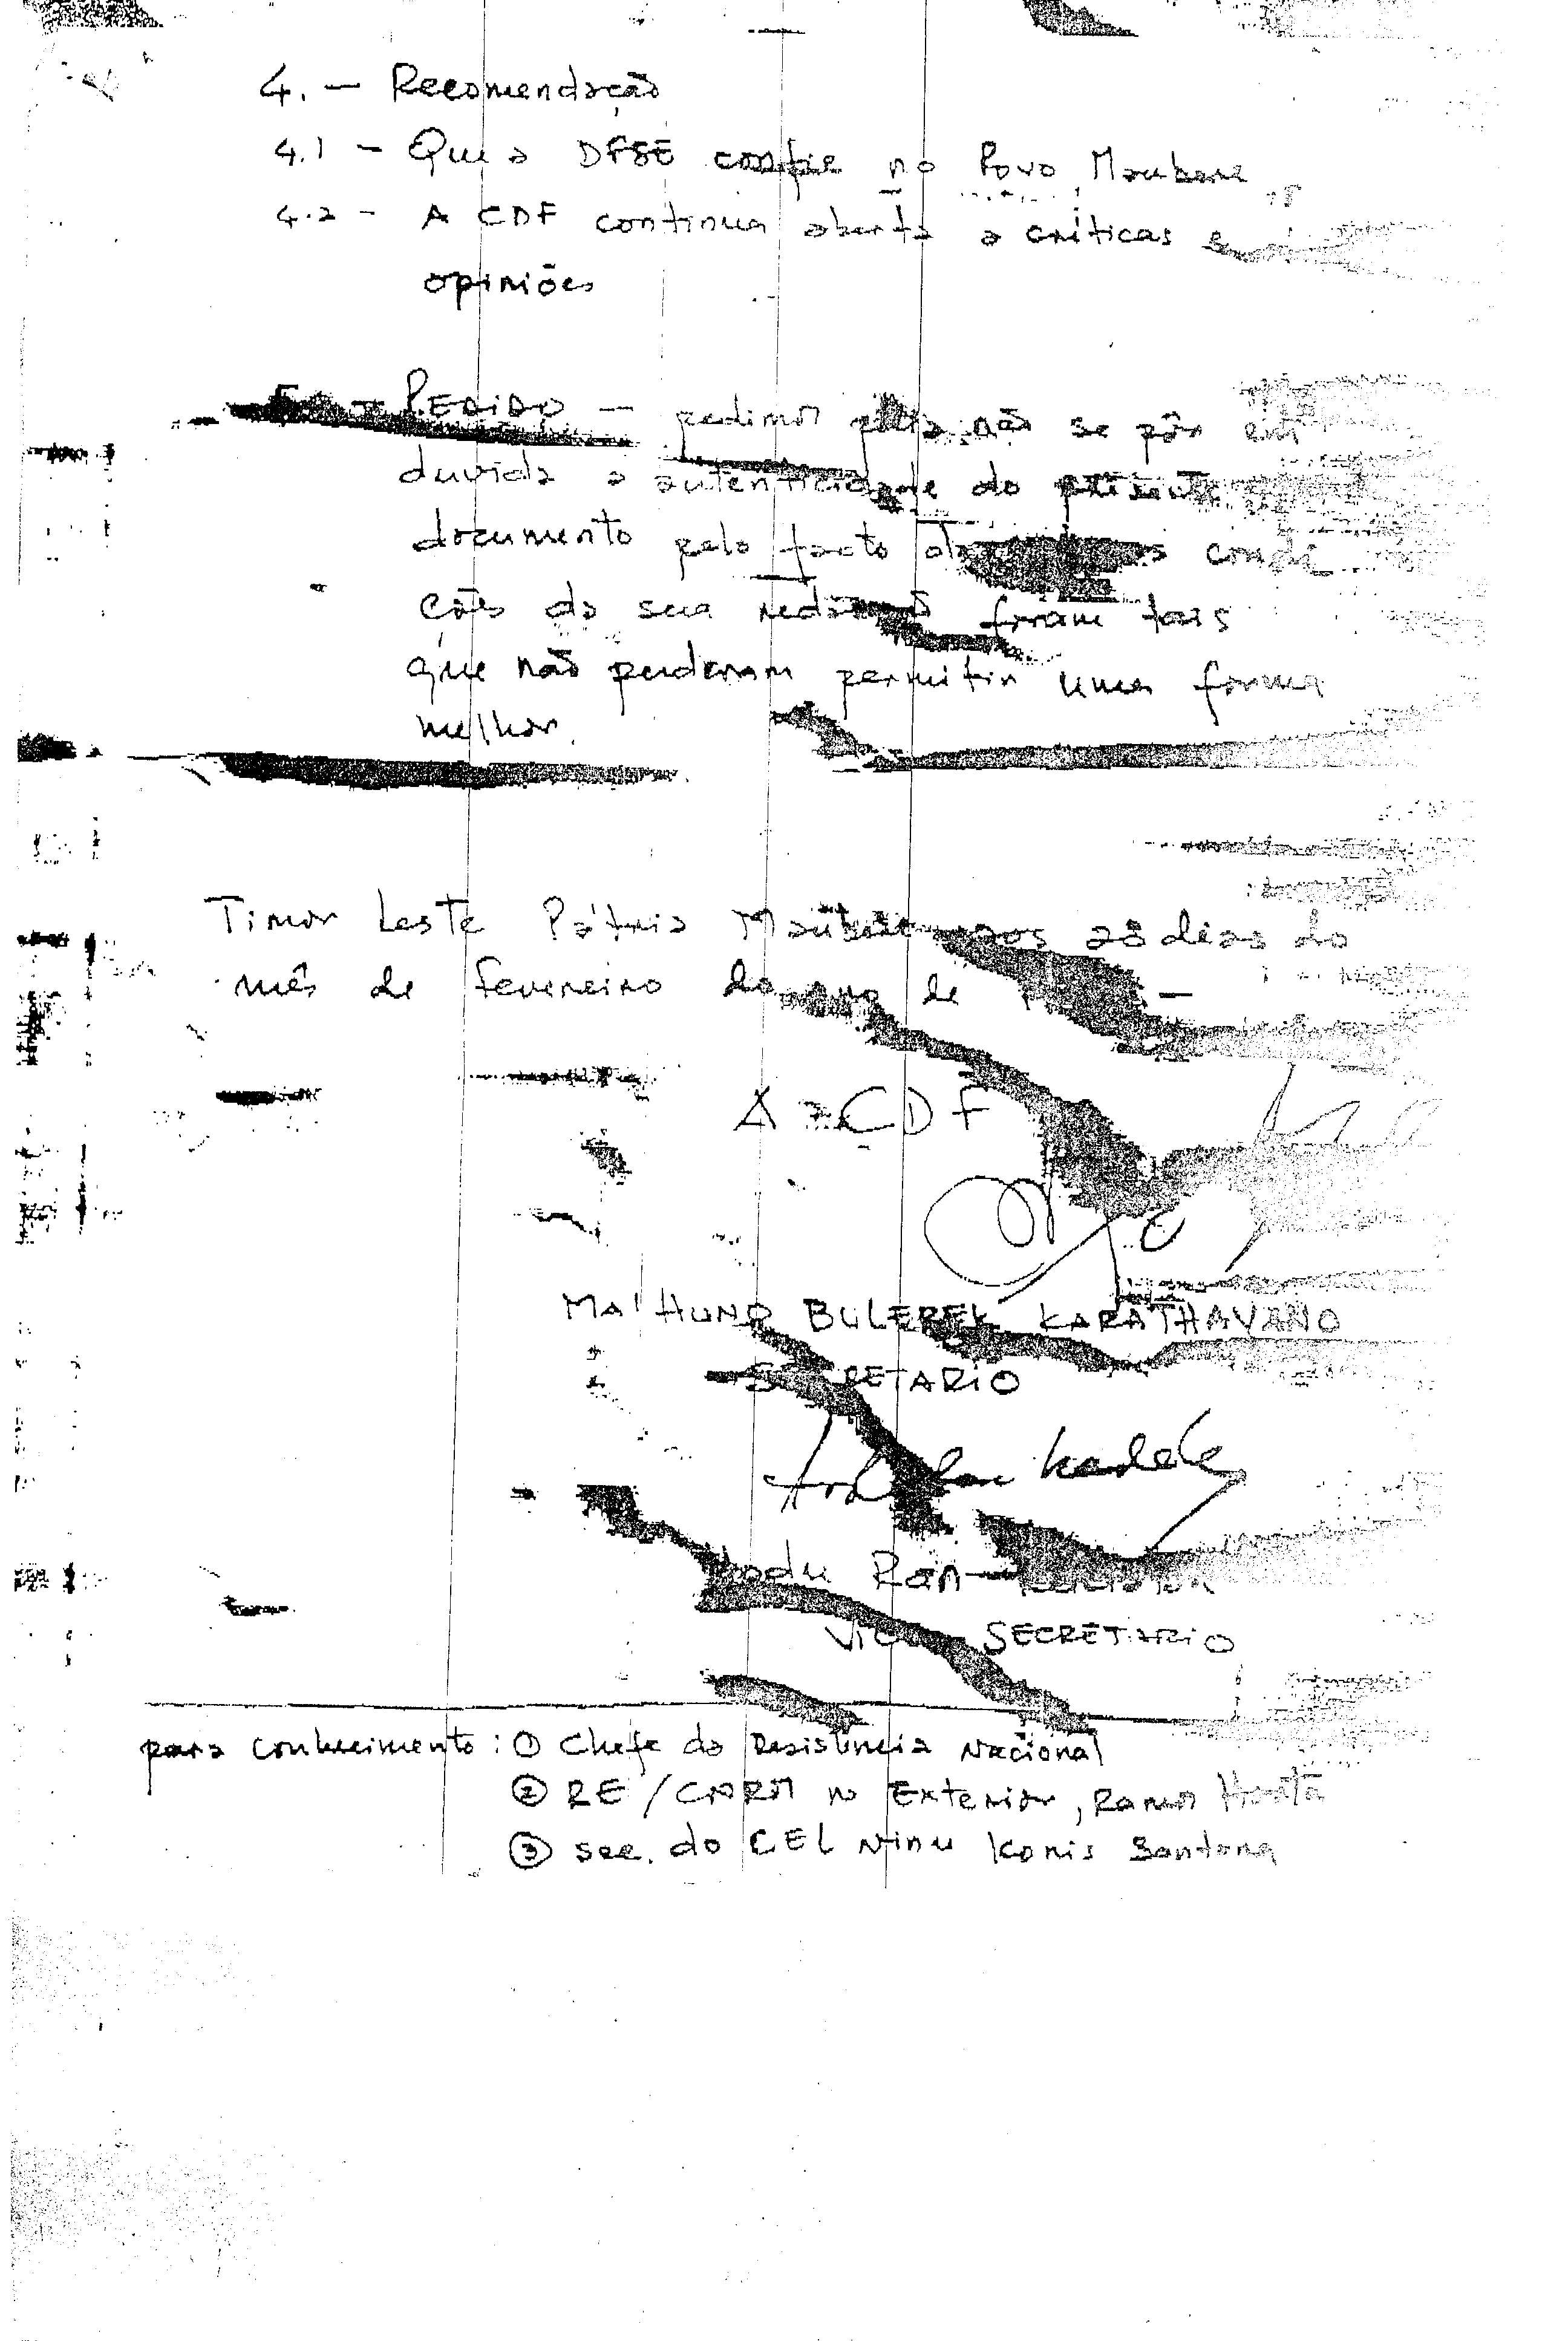 4. - Recomendação
4.1 - Que a DFSE confie no Povo Maubere
4.2 - A CDF continua aberta a críticas e
opiniões
5. - PEDIDO - pedimos para não se pôr em
duvida a autenticidade do presente
documento pelo facto das condi
ções da sua redação foram tais
que não puderam permitir uma forma
melhor.
Timor Leste Pátria Maubere aos 28 dias do
mês de fevereiro do ano de
A CDF
MA'HUNO BULEREK KARATHAYANO
SECRETARIO
Hodu Ran
VICE SECRETARIO
para conhecimento: ① Chefe da Resistência Nacional
② RE/CNRM no Exterior, Ramos Horta
③ sec. do CEL Ninu Konis Santana